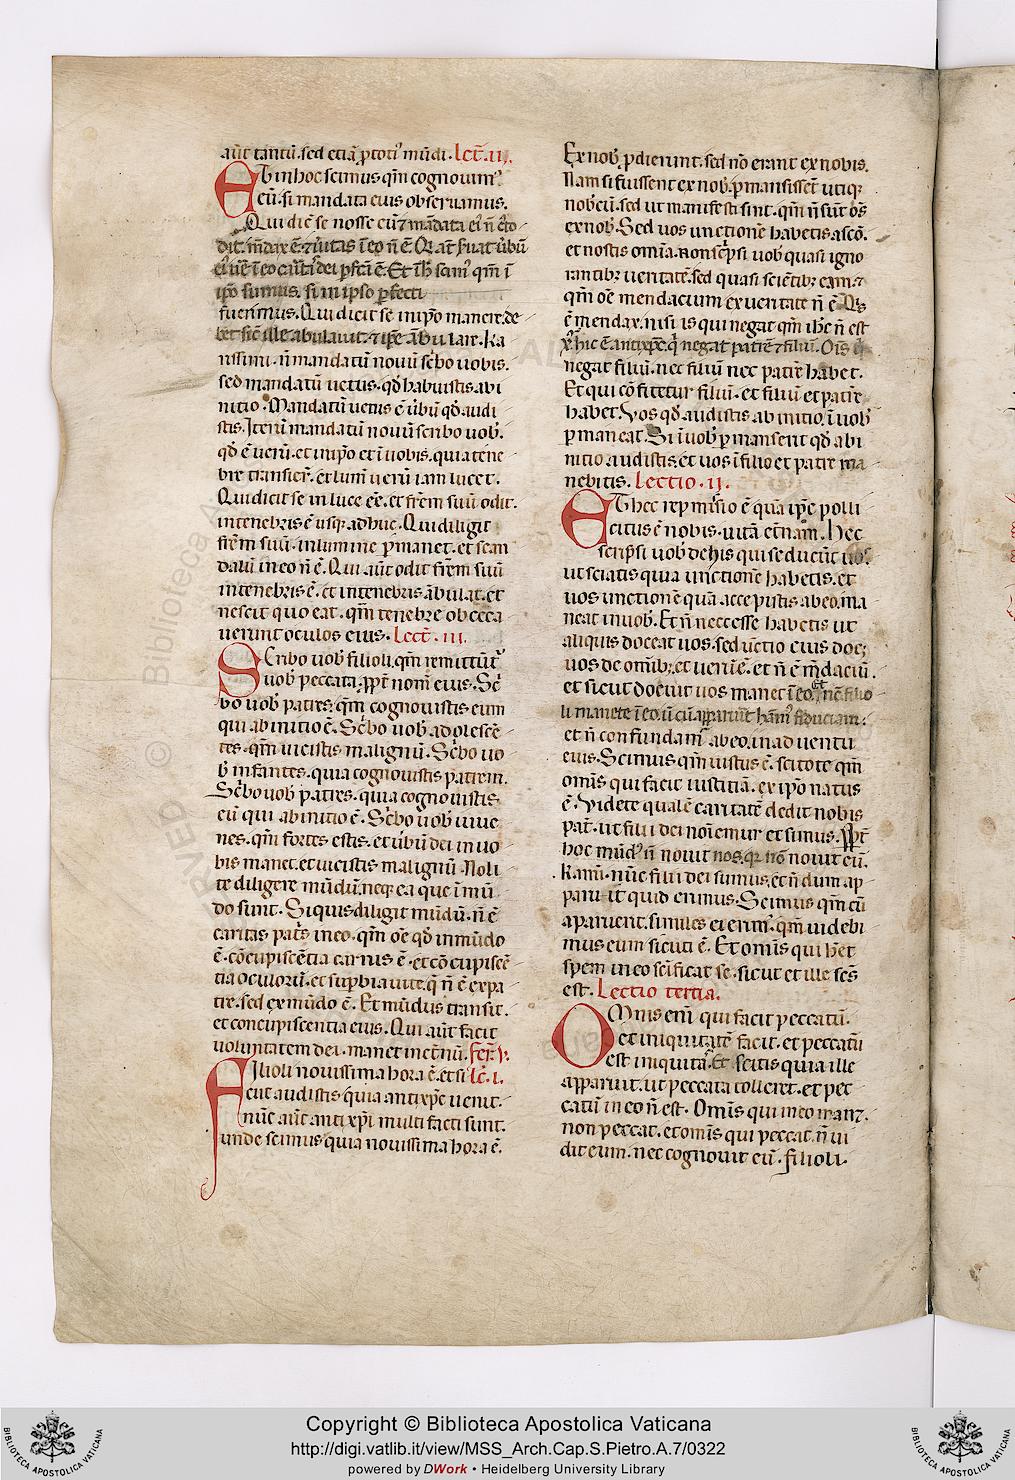 aut̄ tantū. sed etiā p totiꝰ mūdi. Lect̄. ii.
Et in hoc scimus qm̄ cognouimꝰ
eū. si mandata eius obseruamus.
Qui dic̄ se nosse eū ⁊ mādata eiꝰ n̄ cꝰto
dit. m̄dax ē. ⁊ ūitas ī eo n̄ ē. Q̇ at̄ ẜuat ūbū
ī ip̄o sumus. si in ipso p̄fecti
fuerimus. Qui dicit se in ip̄o manere. de
bet sic̄ ille ābulauit. ⁊ ip̄e ābulare. Ka
rissimi. n̄ mandatū nouū sc̄bo uobis.
sed mandatū uetus. qd̄ habuistis ab i
nitio. Mandatū uetus ē ūbū qd̄ audi
stis. Iterū mandatū nouū scribo uob̄.
qd̄ ē uerū. et in ip̄o et ī uobis. quia tene
bre transier̄. et lum̄ uerū iam lucet.
Qui dicit se in luce eē. et fr̄em suū odit.
in tenebris ē usq; adhuc. Qui diligit
fr̄em suū. in lumine p̄manet. et scan
dalū in eo n̄ ē. Qui aūt odit fr̄em suū
in tenebris ē. et in tenebris ābulat. et
nescit quo eat. qm̄ tenebre obceca
uerunt oculos eius. Lect̄. iii.
Scribo uob̄ filioli. qm̄ remittūt̄
uob̄ peccata. ꝓpt̄ nom̄ eius. Sc̄
bo uob̄ patres. qm̄ cognouistis eum
qui ab initio ē. Sc̄bo uob̄ adolescē
tes. qm̄ uicistis malignū. Sc̄bo uo
b̄ infantes. quia cognouistis patrem.
Sc̄bo uob̄ patres. quia cognouistis
eū qui ab initio ē. Sc̄bo uob̄ iuue
nes. qm̄ fortes estis. et ūbū dei in uo
bis manet. et uicistis malignū. Noli
te diligere mūdū. neq; ea que ī mū
do sunt. Si quis diligit mūdū. n̄ ē
caritas pat̄s in eo. qm̄ oē qd̄ in mūdo
ē. cōcupiscētia carnis ē. et cōcupiscē
tia oculorū. et suꝑbia uite. q̄ n̄ ē ex pa
tre. sed ex mūdo ē. Et mūdus transit.
et concupiscentia eius. Qui aūt facit
uolūtatem dei. manet in et̄nū. fer̄. v.
Filioli nouissima hora ē. et si Lc̄. i.
cut audistis quia antixp̄c uenit.
nūc aūt antixp̄i multi facti sunt.
unde scimus quia nouissima hora ē.
Ex nob̄ ꝓdierunt. sed nō erant ex nobis.
Nam si fuissent ex nob̄. ꝑmansissēt utiq;
nobcū. sed ut manifesti sint. qm̄ n̄ sūt oēs
ex nob̄. Sed uos unctionē habetis a scō.
et nostis omīa. Non sc̄psi uob̄ quasi igno
rantibꝰ ueritatē. sed quasi sciētibꝰ eam. ⁊
qm̄ oē mendacium ex ueritate n̄ ē. Q̇s
ē mendax. nisi is qui negat qm̄ ih̄c n̄ est
xp̄c. hic ē antixp̄c. q̇ negat patrē ⁊ filiū. Ois q̇
negat filiū. nec filiū nec patrē habet.
Et qui cōfitetur filiū. et filiū et patrē
habet. Vos qd̄ audistis ab initio. ī uob̄
ꝑmaneat. Si ī uob̄ ꝑmanserit qd̄ ab i
nitio audistis. et uos ī filio et patre ma
nebitis. Lectio. ii.
Et hec repmisio ē quā ip̄e polli
citus ē nobis. uitā et̄nam. Hec
scripsi uob̄ de his qui seducūt uos.
ut sciatis quia unctionē habetis. et
uos unctionē quā accepistis ab eo. ma
neat in uob̄. Et n̄ neccesse habetis ut
aliquis doceat uos. sed ūctio eius doc;
uos de omib;. et uerū ē. et n̄ ē m̄daciū.
et sicut docuit uos manet ī eo. Et nc̄ filio
li manete ī eo. ū cū apparuit̄ ham̄ fiduciam.
et n̄ confundam̄ ab eo. in aduentu
eius. Scimus qm̄ iustus ē. scitote qm̄
omīs qui facit iustitiā. ex ip̄o natus
ē. Videte qualē caritatē dedit nobis
pat̄. ut filii dei noīemur et simus. Ꝓpt̄
hoc mūdꝰ n̄ nouit nos. q; nō nouit eū.
Kam̄. nūc filii dei sumus. et n̄ dum ap
paru it quid erimus. Scimus qm̄ cū
aparuerit. similes ei erimꝰ. qm̄ uidebi
mus eum sicuti ē. Et omīs qui h̄et
spem in eo sc̄ificat se. sicut et ille scs̄
est. Lectio tertia.
Omnis eni qui facit peccatū.
et iniquitatē facit. et peccatū
est iniquita. Et scitis quia ille
apparuit. ut peccata tolleret. et pec
catū in eo n̄ est. Omīs qui in eo man;.
non peccat. et omīs qui peccat. n̄ ui
dit eum. nec cognouit eū. filioli.
Copyright © Biblioteca Apostolica Vaticana
http://digi.vatlib.it/view/MSS_Arch.Cap.S.Pietro.A.7/0322
powered by DWork • Heidelberg University Library